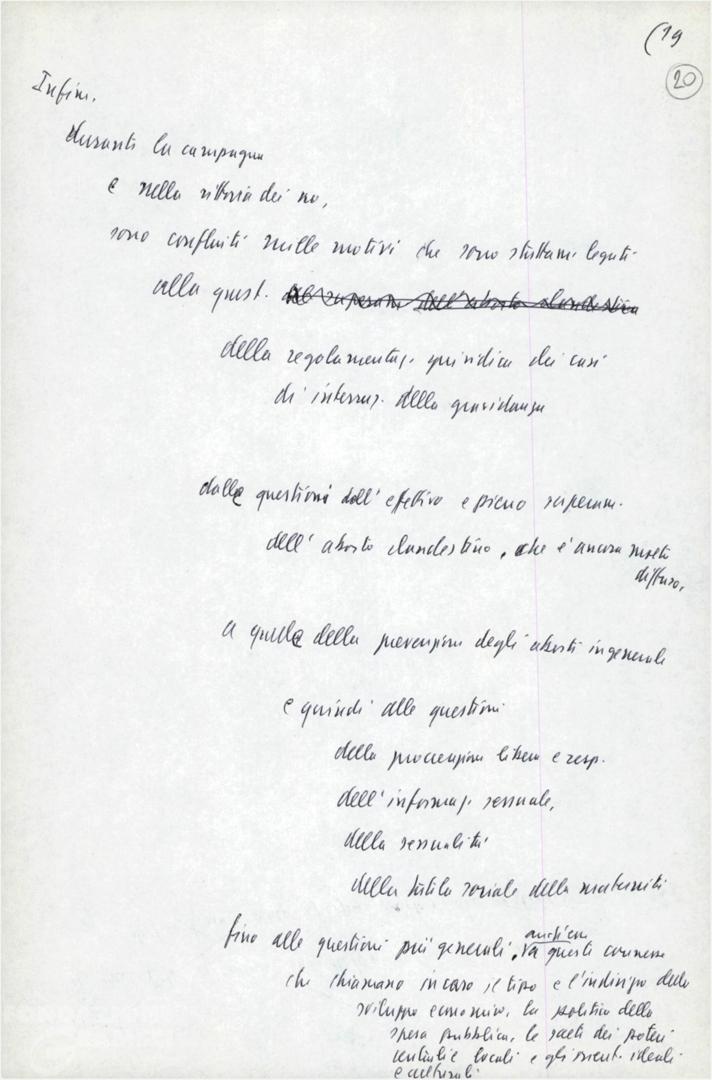 (19
20
Infin.
durante la campagna
e nella vittoria dei no,
sono confluiti mille motivi che sono strettam. legati
alla quest. del superam. dell'aborto clandestino
della regolamentaz. giuridica dei casi
di interruz. della gravidanza
dalle questioni dell'effettivo e pieno superam.
dell'aborto clandestino, che è ancora molto
diffuso,
a quelle della prevenzione degli aborti in generale
e quindi alle questioni
della procreazione libera e resp.
dell'informaz. sessuale,
della sessualità
della tutela sociale della maternità
fino alle questioni più generali, a queste connesse
che chiamano in causa il tipo e l'indirizzo dello
sviluppo economico, la politica della
spesa pubblica, le scelte dei poteri
centrali e locali e gli orient. ideali
e culturali